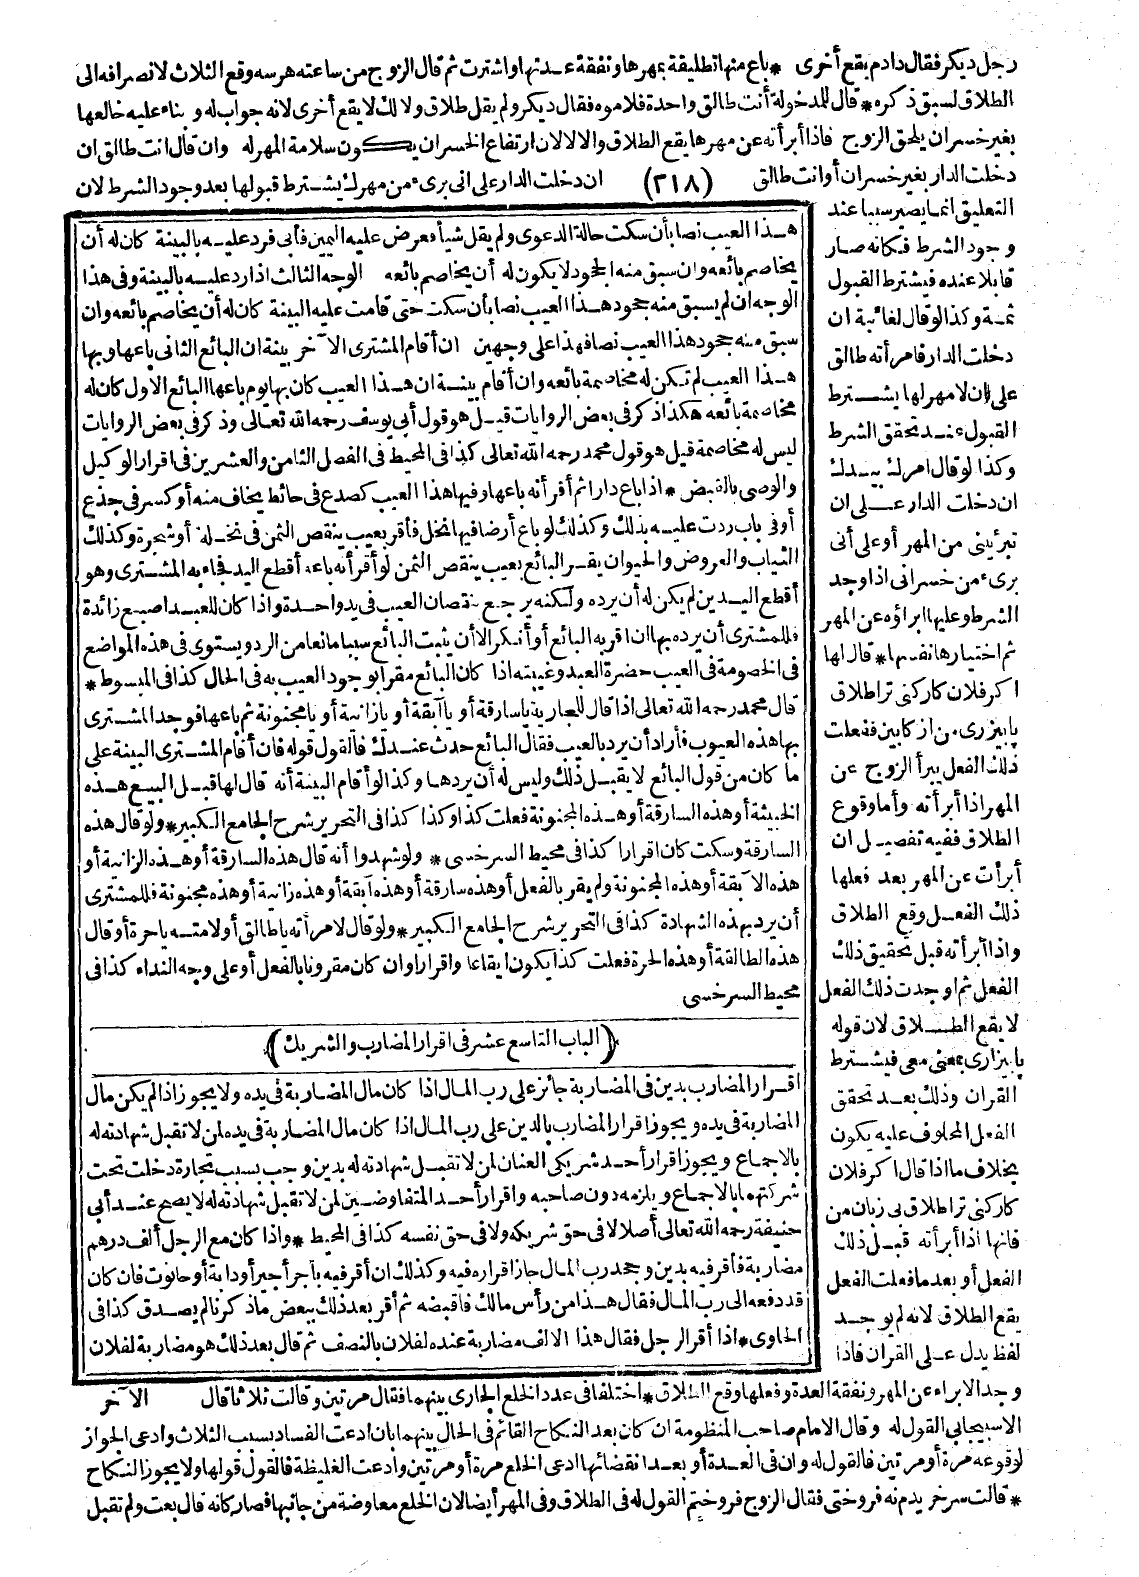 رجل ديكر فقال دادم يقع أخرى * باع منها تطليقة بمهرها ونفقة عدتها واشترت ثم قال الزوج من ساعته هرسه وقع الثلاث لانصرافه الى
الطلاق لسبق ذكره * قال للمدخولة أنت طالق واحدة فلاموه فقال ديكر ولم يقل طلاق ولا لك لا يقع أخرى لانه جواب له وبناء عليه خالعها
بغير خسران يلحق الزوج فاذا أبرأته عن مهرها يقع الطلاق والا لا لان ارتفاع الخسران يكون سلامة المهر له وان قال انت طالق ان
دخلت الدار بغير خسران أو انت طالق (٢١٨) ان دخلت الدار على انى برىء من مهرك يشترط قبولها بعد وجود الشرط لان
التعليق انما يصير سببا عند
وجود الشرط فكانه صار
قابلا عنده فيشترط القبول
ثمة وكذا لو قال لغائبة ان
دخلت الدار فامرأته طالق
على ان لا مهر لها يشترط
القبول عند تحقق الشرط
وكذا لو قال امرك بيدك
ان دخلت الدار على ان
تبرئينى من المهر أو على أنى
برىء من خسرانى اذا وجد
الشرط وعليها ابراؤه عن المهر
ثم اختيارها نفسها * قال لها
اكر فلان كاركنى ترا طلاق
پابيزرى من از كابين ففعلت
ذلك الفعل يبرأ الزوج عن
المهر اذا أبرأته وأما وقوع
الطلاق ففيه تفصيل ان
أبرأت عن المهر بعد فعلها
ذلك الفعل وقع الطلاق
واذا أبرأته قبل تحقيق ذلك
الفعل ثم اوجدت ذلك الفعل
لا يقع الطلاق لان قوله
پابيزارى بمعنى معى فيشترط
القران وذلك بعد تحقق
الفعل المحلوف عليه يكون
بخلاف ما اذا قال اكر فلان
كاركنى ترا طلاق بى زيان من
فانها اذا أبرأته قبل ذلك
الفعل أو بعد ما فعلت الفعل
يقع الطلاق لانه لم يوجد
لفظ يدل على القران فاذا
هذا العيب نصا بأن سكت حالة الدعوى ولم يقل شيأ فعرض عليه اليمين فأبى فرد عليه بالبينة كان له أن
يخاصم بائعه وان سبق منه الجحود لا يكون له أن يخاصم بائعه الوجه الثالث اذا رد عليه بالبينة وفى هذا
الوجه ان لم يسبق منه جحود هذا العيب نصا بأن سكت حتى قامت عليه البينة كان له أن يخاصم بائعه وان
سبق منه جحود هذا العيب نصا فهذا على وجهين ان أقام المشترى الآخر بينة ان البائع الثانى باعها وبها
هذا العيب لم تكن له مخاصمة بائعه وان أقام بينة ان هذا العيب كان بها يوم باعها البائع الاول كان له
مخاصمة بائعه هكذا ذكر فى بعض الروايات قيل هو قول أبى يوسف رحمه الله تعالى وذكر فى بعض الروايات
ليس له مخاصمة قيل هو قول محمد رحمه الله تعالى كذا فى المحيط فى الفصل الثامن والعشرين فى اقرار الوكيل
والوصى بالقبض * اذا باع دارا ثم أقر أنه باعها وفيها هذا العيب كصدع فى حائط يخاف منه أو كسر فى جذع
أو فى باب ردت عليه بذلك وكذلك لو باع أرضا فيها نخل فأقر بعيب ينقص الثمن فى نخلة أو شجرة وكذلك
الثياب والعروض والحيوان يقر البائع بعيب ينقص الثمن لو أقر أنه باعه أقطع اليد فجاء به المشترى وهو
أقطع اليدين لم يكن له أن يرده ولكنه يرجع بنقصان العيب فى يد واحدة واذا كان للعبد اصبع زائدة
فللمشترى أن يرده بها ان اقر به البائع أو أنكر الا أن يثبت البائع سببا مانعا من الرد ويستوى فى هذه المواضع
فى الخصومة فى العيب حضرة العبد وغيبته اذا كان البائع مقرا بوجود العيب به فى الحال كذا فى المبسوط *
قال محمد رحمه الله تعالى اذا قال للجارية يا سارقة أو يا آبقة أو يا زانية أو يا مجنونة ثم باعها فوجد المشترى
بها هذه العيوب فأراد أن يرد بالعيب فقال البائع حدث عندك فالقول قوله فان أقام المشترى البينة على
ما كان من قول البائع لا يقبل ذلك وليس له أن يردها وكذا لو أقام البينة أنه قال لها قبل البيع هذه
الخبيثة أو هذه السارقة أو هذه المجنونة فعلت كذا وكذا كذا فى التحرير شرح الجامع الكبير * ولو قال هذه
السارقة وسكت كان اقرارا كذا فى محيط السرخسى * ولو شهدوا أنه قال هذه السارقة أو هذه الزانية أو
هذه الآبقة أو هذه المجنونة ولم يقر بالفعل أو هذه سارقة أو هذه آبقة أو هذه زانية أو هذه مجنونة فللمشترى
أن يرد بهذه الشهادة كذا فى التحرير شرح الجامع الكبير * ولو قال لامرأته يا طالق أو لامته يا حرة أو قال
هذه الطالقة أو هذه الحرة فعلت كذا يكون ايقاعا واقرارا وان كان مقرونا بالفعل أو على وجه النداء كذا فى
محيط السرخسى
(الباب التاسع عشر فى اقرار المضارب والشريك)
اقرار المضارب بدين فى المضاربة جائز على رب المال اذا كان مال المضاربة فى يده ولا يجوز اذا لم يكن مال
المضاربة فى يده ويجوز اقرار المضارب بالدين على رب المال اذا كان مال المضاربة فى يده لمن لا تقبل شهادته له
بالاجماع ويجوز اقرار أحد شريكى العنان لمن لا تقبل شهادته له بدين وجب بسبب تجارة دخلت تحت
شركتهما بالاجماع ويلزمه دون صاحبه واقرار أحد المتفاوضين لمن لا تقبل شهادته له لا يصح عند أبى
حنيفة رحمه الله تعالى أصلا لا فى حق شريكه ولا فى حق نفسه كذا فى المحيط * واذا كان مع الرجل ألف درهم
مضاربة فأقر فيه بدين وجحد رب المال جاز اقراره فيه وكذلك ان أقر فيه بأجر أجير أو دابة أو حانوت فان كان
قد دفعه الى رب المال فقال هذا من رأس مالك فاقبضه ثم أقر بعد ذلك ببعض ما ذكرنا لم يصدق كذا فى
الحاوى * اذا أقر الرجل فقال هذا الالف مضاربة عنده لفلان بالنصف ثم قال بعد ذلك هو مضاربة لفلان
وجد الابراء عن المهر ونفقة العدة وفعلها وقع الطلاق * اختلفا فى عدد الخلع الجارى بينهما فقال مرتين وقالت ثلاثا قال الآخر
الاسبيجابى القول له وقال الامام صاحب المنظومة ان كان بعد النكاح القائم فى الحال بينهما بان ادعت الفساد بسبب الثلاث وادعى الجواز
لوقوعه مرة أو مرتين فالقول له وان فى العدة أو بعد انقضائها ادعى الخلع مرة أو مرتين وادعت الغليظة فالقول قولها ولا يجوز النكاح
* قالت سرخريدم نه فروختى فقال الزوج فروختم القول له فى الطلاق وفى المهر أيضا لان الخلع معاوضة من جانبها فصار كانه قال بعت ولم تقبل